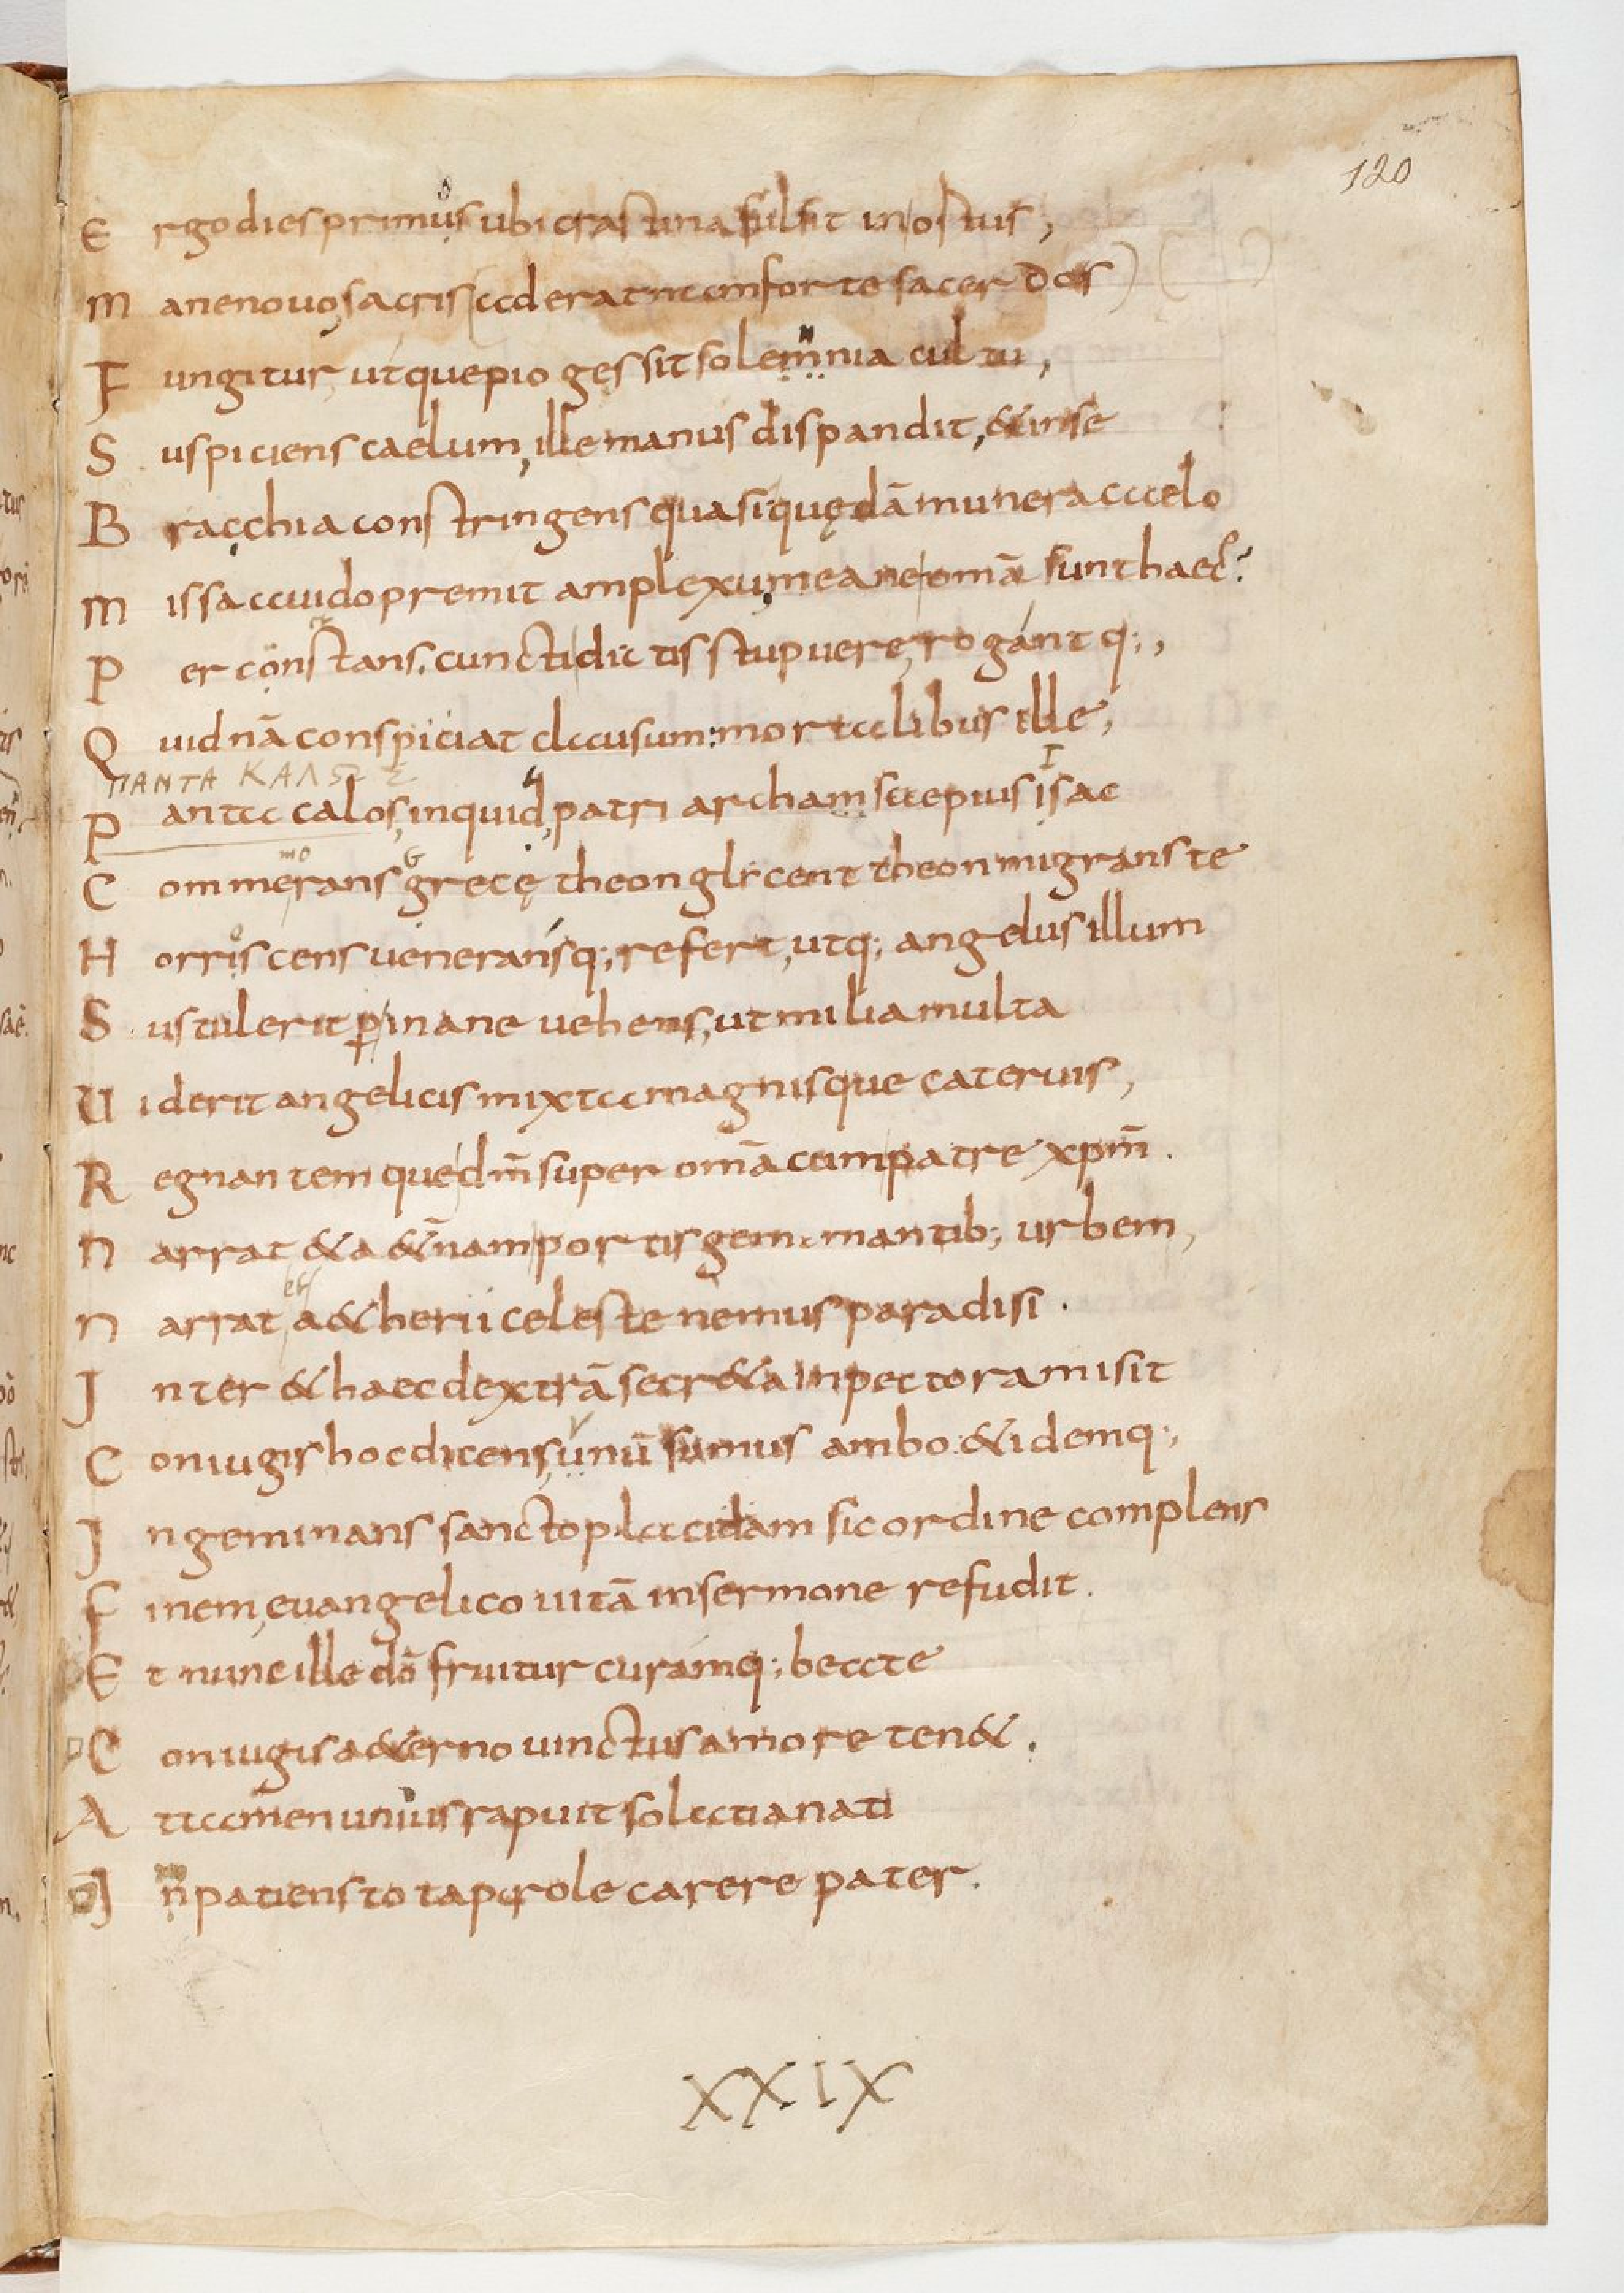 120
E rgo dies primus ubi crastina fulsit in ostuis,
M ane nouo sacris (ad erat nam forte sacerdos)
F ungitur, utque pio gessit solemnia cultu,
S uspiciens caelum, ille manus dispandit, & in se
B racchia constringens quasi quędā munera a celo
M issa auido premit amplexu mea ne omā sunt haec?
P er constans. cuncti dictis stupuere, rogant q;,
Q uid nā conspiciat clausum mortalibus ille,
ΠΑΝΤΑ ΚΑΛΩΣ
P anta calos, inquid, patriarcham saepius isac
C ommerans grecę theon glicent theon migrans te
H orriscens ueneransq; refert, utq; angelus illum
S ustulerit ꝑ inane uehens, ut milia multa
U iderit angelicis mixta magnisque cateruis,
R egnantem que dm̄ super omā cum patre xpm̄.
N arrat & a&̄nam portis gemmantib; urbem,
N arrat, a&herii celeste nemus paradisi.
I nter & haec dextrā secr&a in pectora misit
C oniugis hoc dicens, unū sumus ambo & idemq;,
I ngeminans sancto placidam sic ordine complens
F inem, euangelico uitā in sermone refudit.
E t nunc ille dō fruitur curamq; beate
C oniugis a&erno uinctus amore ten&.
A ttamen unius rapuit solatia nati
I n̄patiens tota prole carere pater.
XXIX